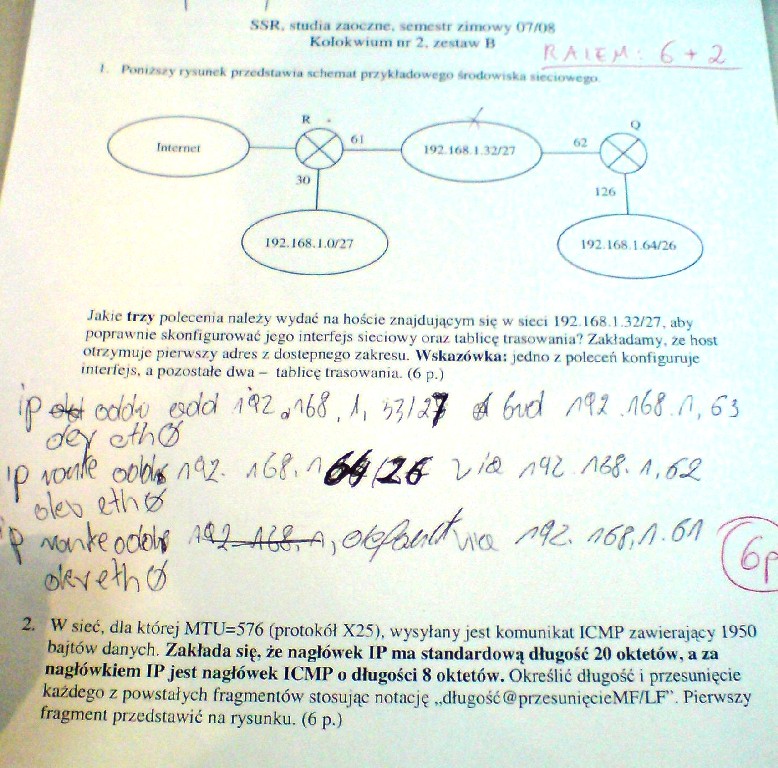 SSR, studia zaoczne, semestr zimowy 07/08
Kolokwium nr 2, zestaw B
RAZEM: 6 + 2
1. Poniższy rysunek przedstawia schemat przykładowego środowiska sieciowego.
Internet
R
61
192.168.1.32/27
62
Q
30
126
192.168.1.0/27
192.168.1.64/26
Jakie trzy polecenia należy wydać na hoście znajdującym się w sieci 192.168.1.32/27, aby
poprawnie skonfigurować jego interfejs sieciowy oraz tablicę trasowania? Zakładamy, że host
otrzymuje pierwszy adres z dostępnego zakresu. Wskazówka: jedno z poleceń konfiguruje
interfejs, a pozostałe dwa – tablicę trasowania. (6 p.)
ip addr add 192.168.1.33/27 brd 192.168.1.63
dev eth0
ip route add 192.168.1.64/26 via 192.168.1.62
dev eth0
ip route add default via 192.168.1.61
dev eth0
6p
2. W sieć, dla której MTU=576 (protokół X25), wysyłany jest komunikat ICMP zawierający 1950
bajtów danych. Zakłada się, że nagłówek IP ma standardową długość 20 oktetów, a za
nagłówkiem IP jest nagłówek ICMP o długości 8 oktetów. Określić długość i przesunięcie
każdego z powstałych fragmentów stosując notację „długość@przesunięcieMF/LF”. Pierwszy
fragment przedstawić na rysunku. (6 p.)